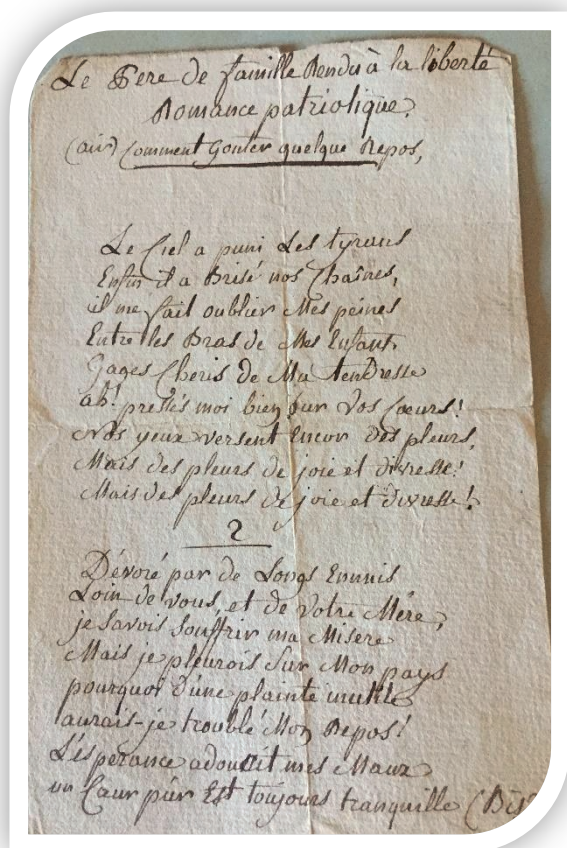 Le Pere de famille Rendu à la liberté
Romance patriotique.
(air) Comment Gouter quelque Repos,
Le Ciel a puni Les tyrans
Enfin il a Brisé nos Chaînes,
il me fait oublier Mes peines
Entre les Bras de Mes Enfant,
Gages Cheris de Ma tendresse
ah! pressés moi bien sur Vos Cœurs!
Nos yeux versent Encor Des pleurs,
Mais des pleurs de joie et d'ivresse!
Mais des pleurs de joie et d'ivresse!
2
Dévoré par de Longs Ennuis
Loin de vous, et de Votre Mére,
je savois souffrir ma Misere
Mais je pleurois Sur Mon pays
pourquoi d'une plainte inutile
aurais-je troublé Mon Repos!
L'esperance adoucit mes Maux
un Cœur pûr Est toujours tranquille (Bis